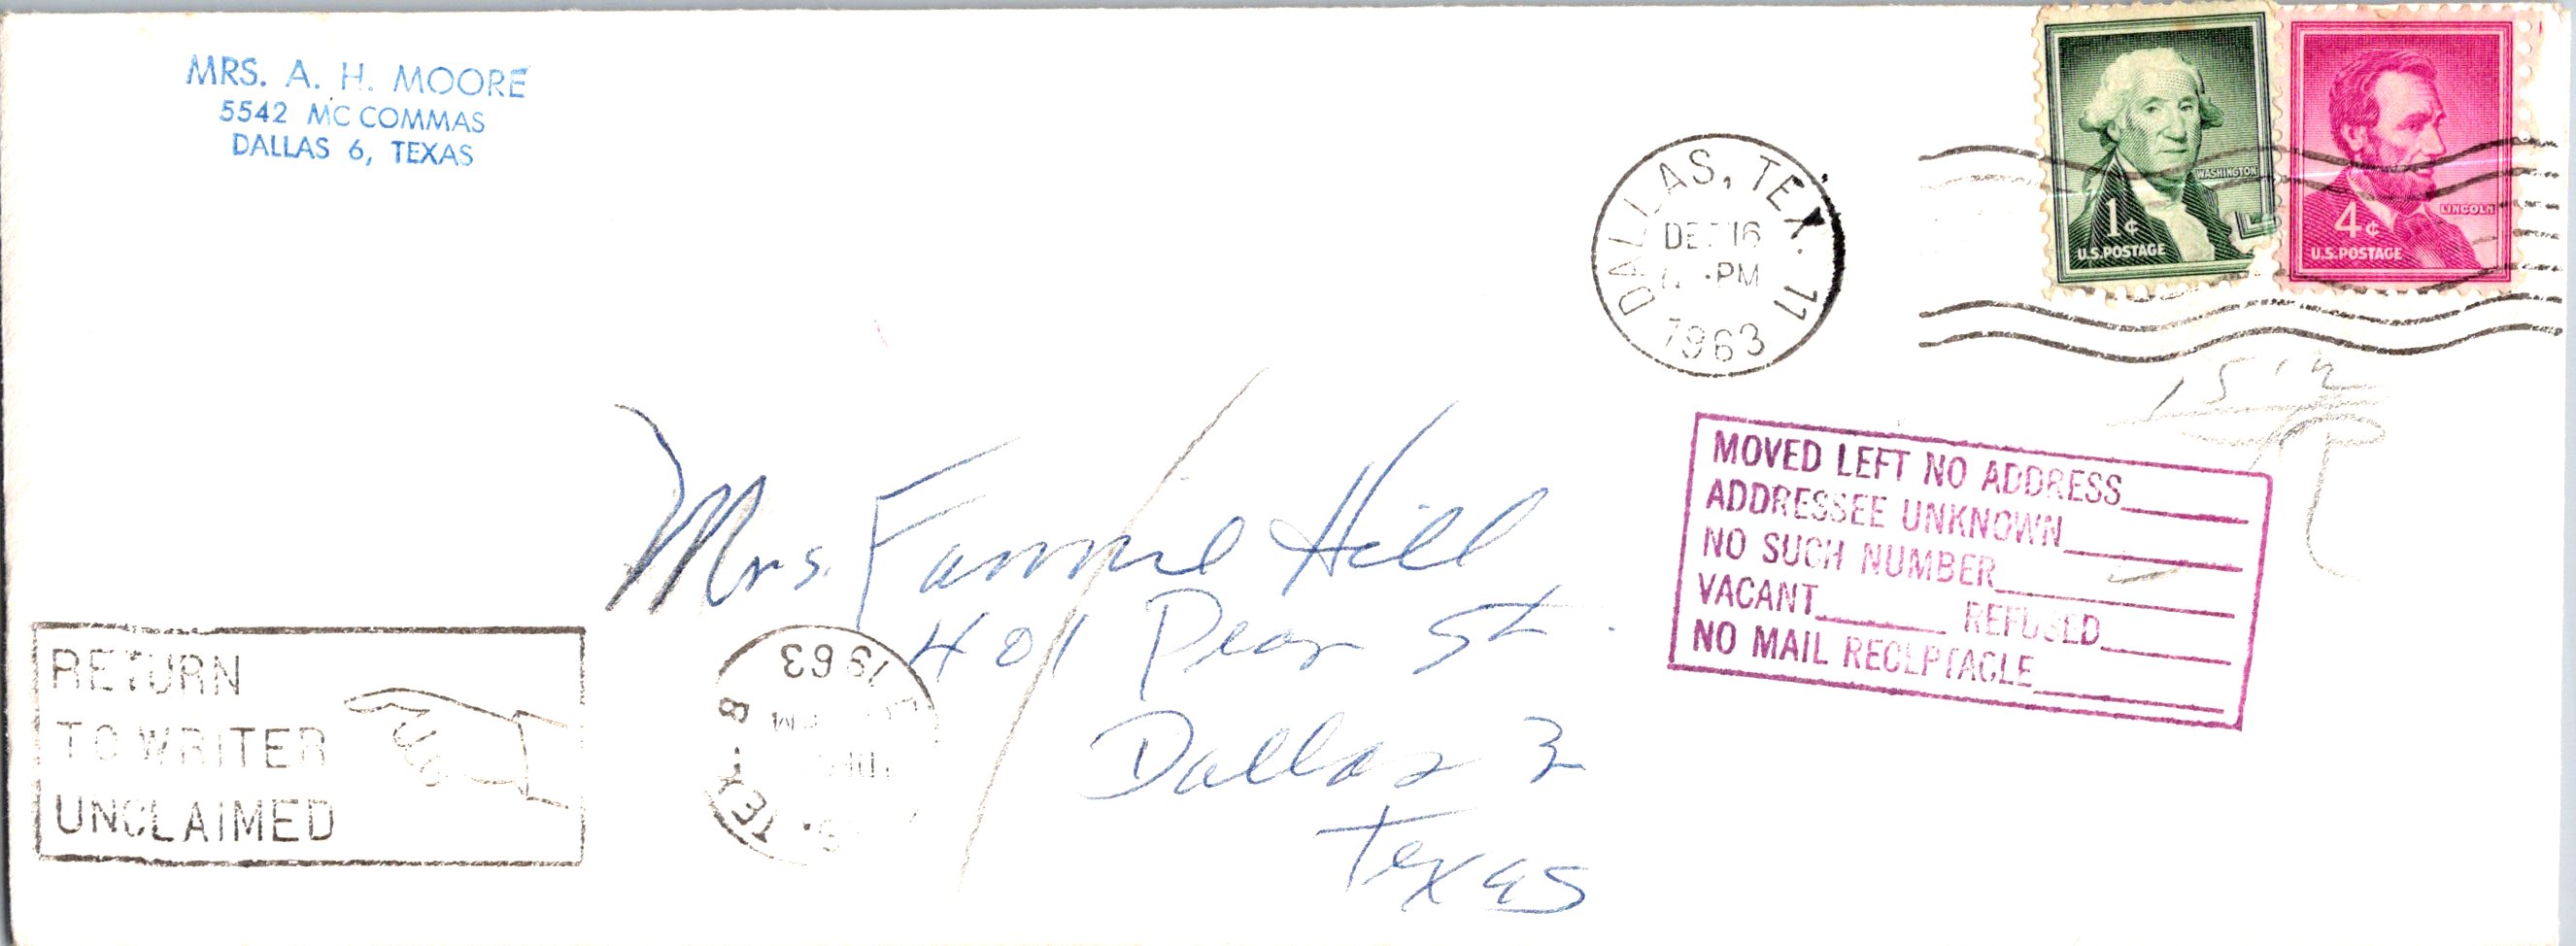 MRS. A. H. MOORE
5542 MC COMMAS
DALLAS 6, TEXAS
DALLAS, TEX. 11
DEC 16
PM
1963
WASHINGTON
1¢
U.S. POSTAGE
LINCOLN
4¢
U.S. POSTAGE
MOVED LEFT NO ADDRESS
ADDRESSEE UNKNOWN
NO SUCH NUMBER
VACANT REFUSED
NO MAIL RECEPTACLE
Mrs. Fannie Hill
401 Pear St.
Dallas 3
Texas
RETURN
TO WRITER
UNCLAIMED
1963
TEX